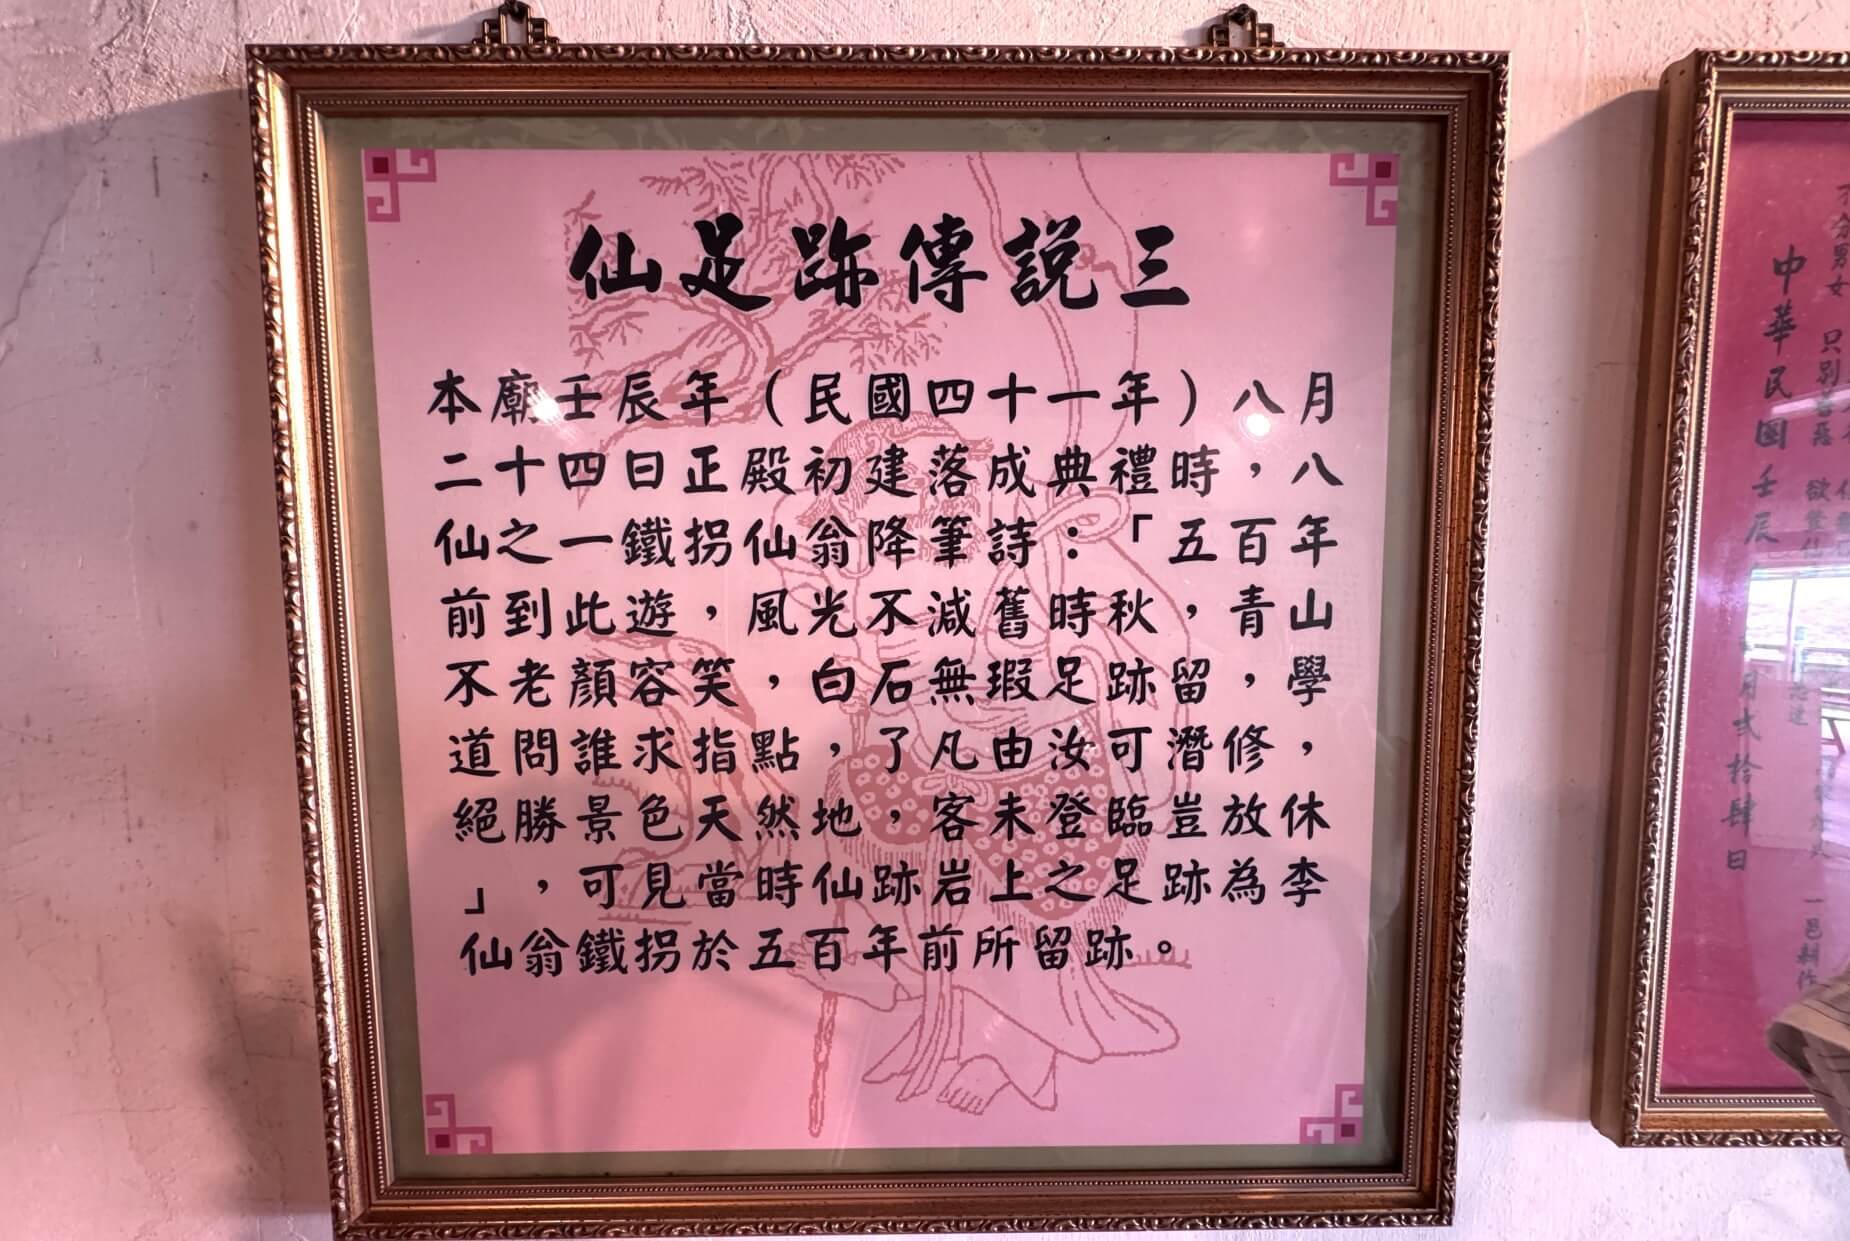 仙足跡傳説三
本廟壬辰年（民國四十一年）八月
二十四日正殿初建落成典禮時，八
仙之一鐵拐仙翁降筆詩：「五百年
前到此遊，風光不減舊時秋，青山
不老顏容笑，白石無瑕足跡留，學
道問誰求指點，了凡由汝可潛修，
絕勝景色天然地，客未登臨豈放休
」，可見當時仙跡岩上之足跡為李
仙翁鐵拐於五百年前所留跡。
不分男女 只別善惡
欲登仙
中華民國壬辰 月弍拾肆日